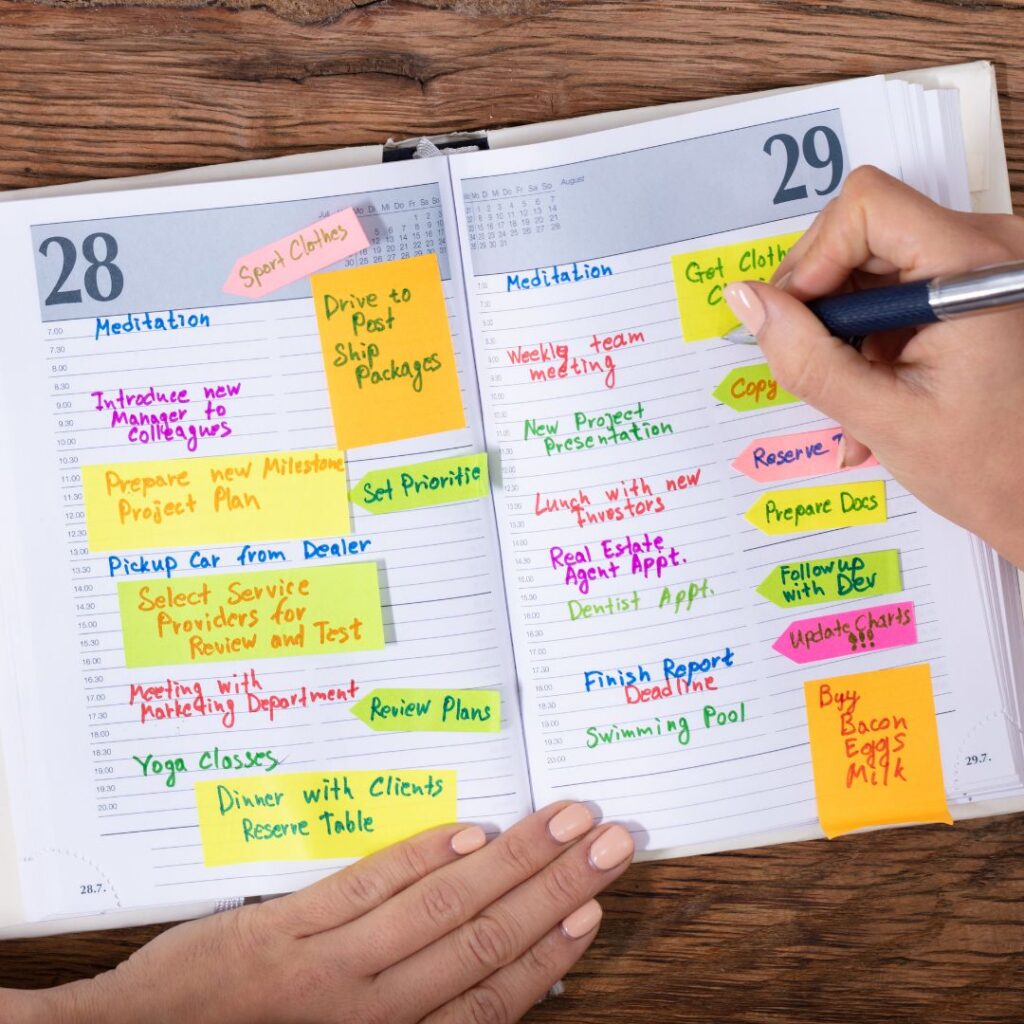 28
Juli
Mo Di Mi Do Fr Sa So
Sport Clothes
Drive to
Post
Ship
Packages
7.00
Meditation
7.30
8.00
8.30
9.00
Introduce new
Manager to
Colleagues
9.30
10.00
10.30
11.00
Prepare new Milestone
Project Plan
11.30
12.00
12.30
Set Prioritie
13.00
13.30
Pickup Car from Dealer
14.00
14.30
Select Service
Providers for
Review and Test
15.00
15.30
16.00
16.30
Meeting with
Marketing Department
17.00
17.30
Review Plans
18.00
18.30
19.00
Yoga Classes
19.30
20.00
Dinner with Clients
Reserve Table
28.7.
29
August
Mo Di Mi Do Fr Sa So
Meditation
Get
Weekly team
meeting
Copy
New Project
Presentation
Reserve
Lunch with new
Investors
Prepare Docs
Real Estate
Agent Appt.
Follow up
with Dev
Dentist Appt.
Update Charts
!!!
Finish Report
Deadline
Swimming Pool
Buy
Bacon
Eggs
Milk
29.7.